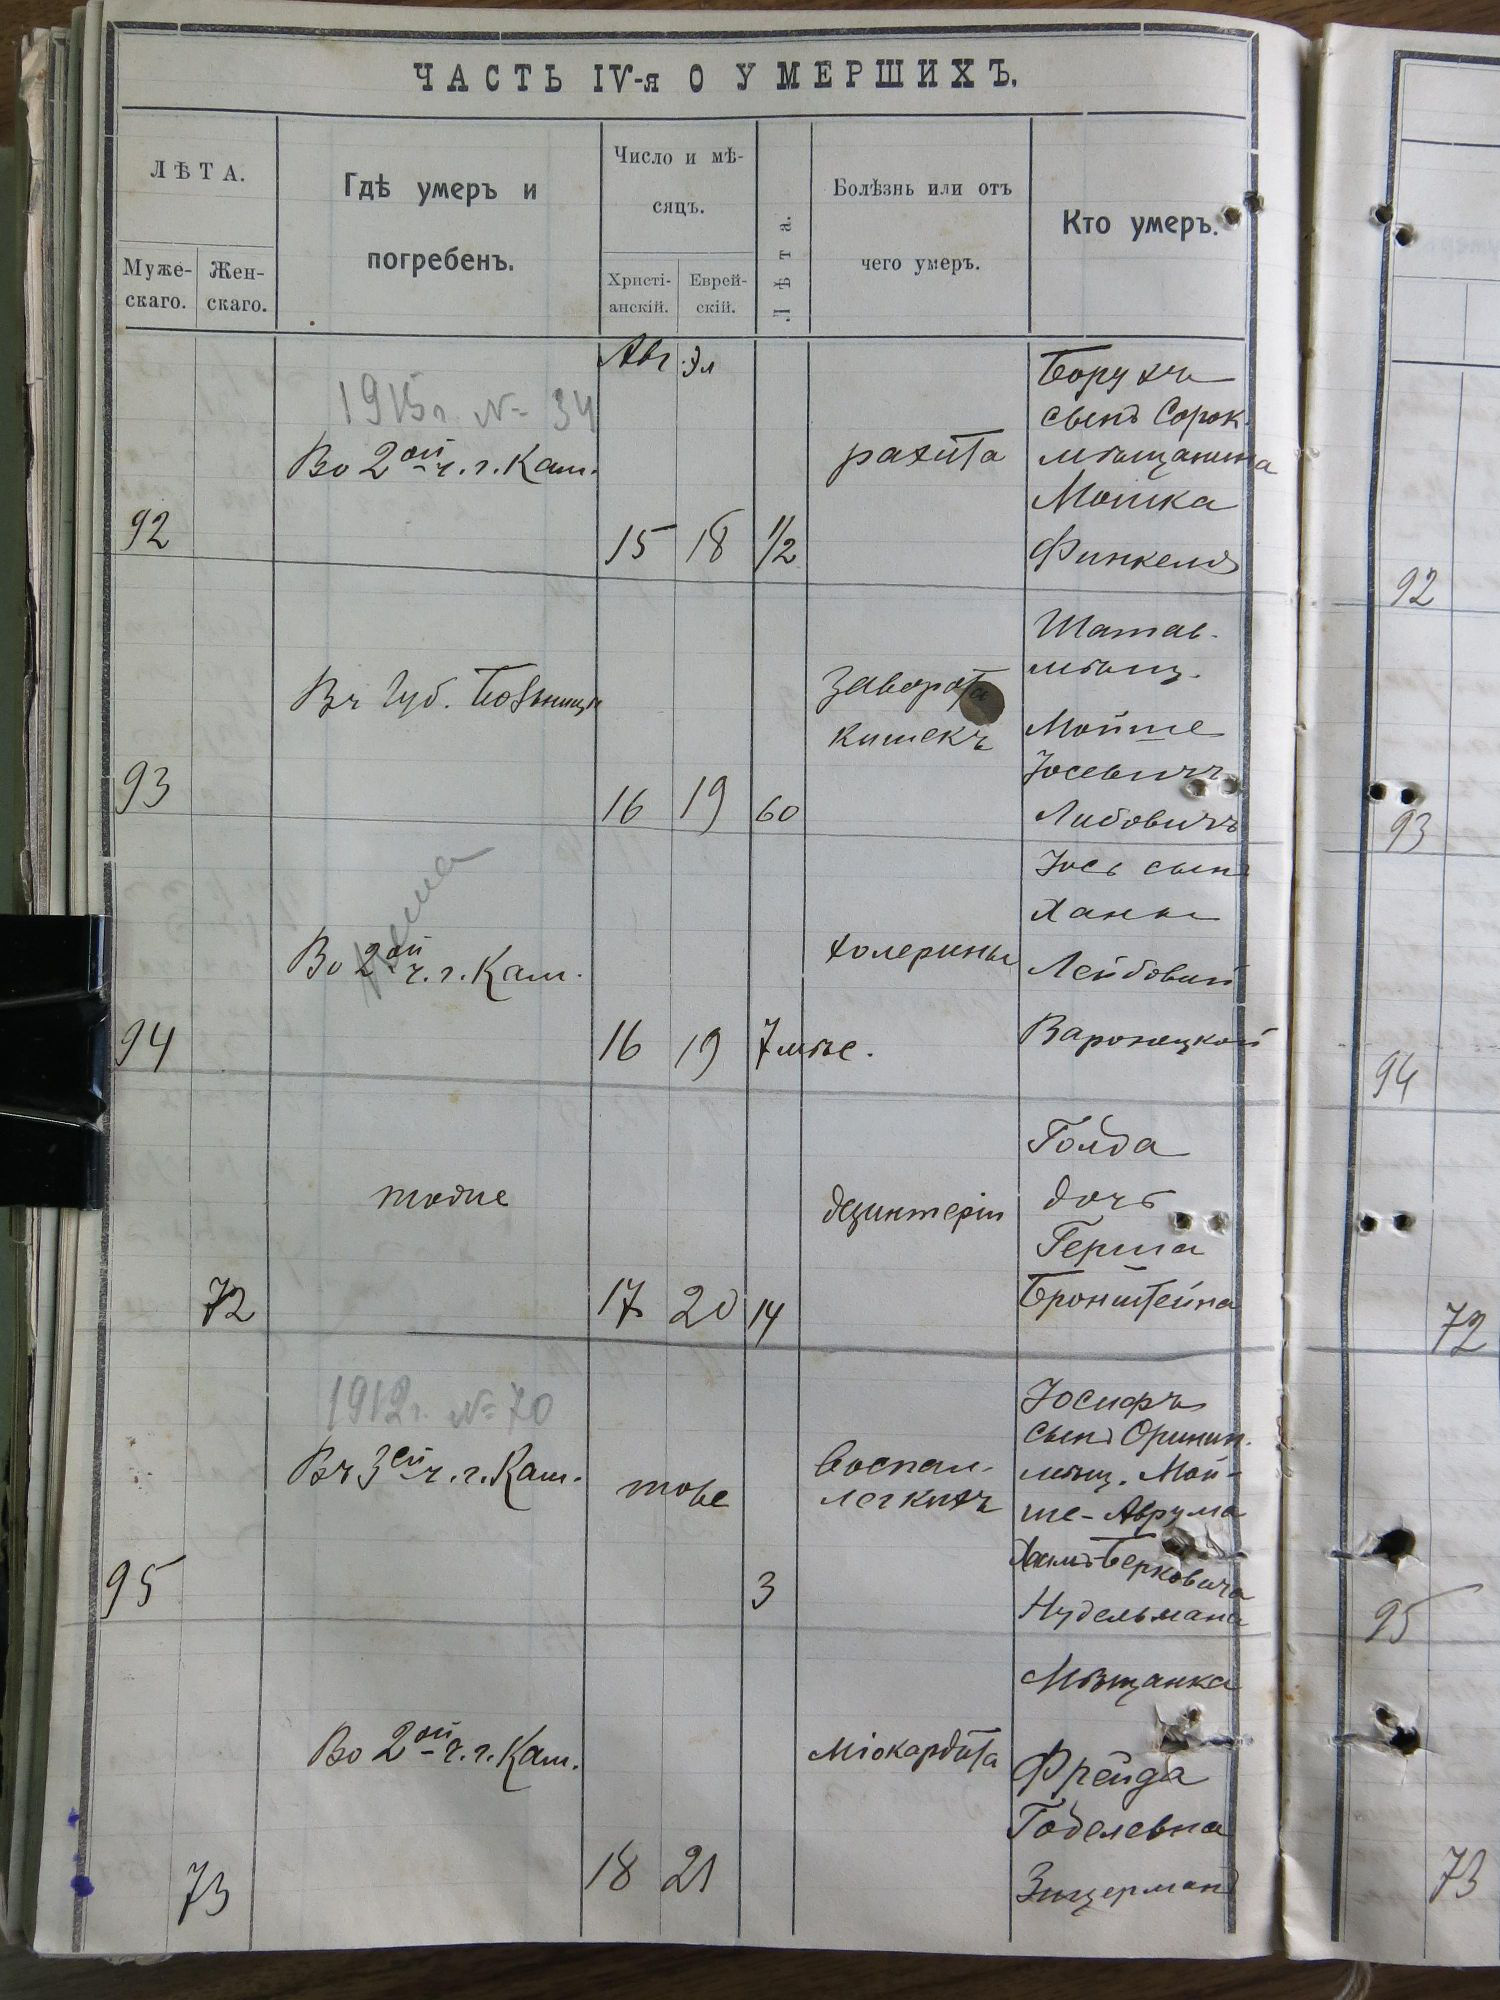 ЧАСТЬ IV-я О УМЕРШИХЪ.
ЛѢТА.
Муже-
скаго.
Жен-
скаго.
Гдѣ умеръ и
погребенъ.
Число и мѣ-
сяцъ.
Христі-
анскій.
Еврей-
скій.
Лѣта.
Болѣзнь или отъ
чего умеръ.
Кто умеръ.
Авг Эл
1915г. № 34
Во 2ой ч. г. Кам.
92
15 18 1/2
рахита
Борухъ
сынъ Сорок.
мѣщанина
Мошка
Финкель
92
Въ Губ. Больницѣ
93
16 19 60
заворота
кишекъ
Шатав.
мѣщ.
Мойше
Іосевичъ
Либовичъ
93
Во 2ой ч. г. Кам.
94
16 19 7 мѣс.
холерины
Іось сынъ
Ханы
Лейбовий
Варонецкой
94
тоже
72
17 20 14
дезинтеріи
Голда
дочь
Герша
Бронштейна
72
1912г. № 70
Въ 3ей ч. г. Кам.
тоже
95
3
воспал.
легкихъ
Іосифъ
сынъ Оринин.
мѣщ. Мой-
ше-Аврума
Хаимъ Берковича
Нудельмана
95
Во 2ой ч. г. Кам.
73
18 21
міокардита
Мѣщанка
Фрейда
Годелевна
Зицерманъ
73